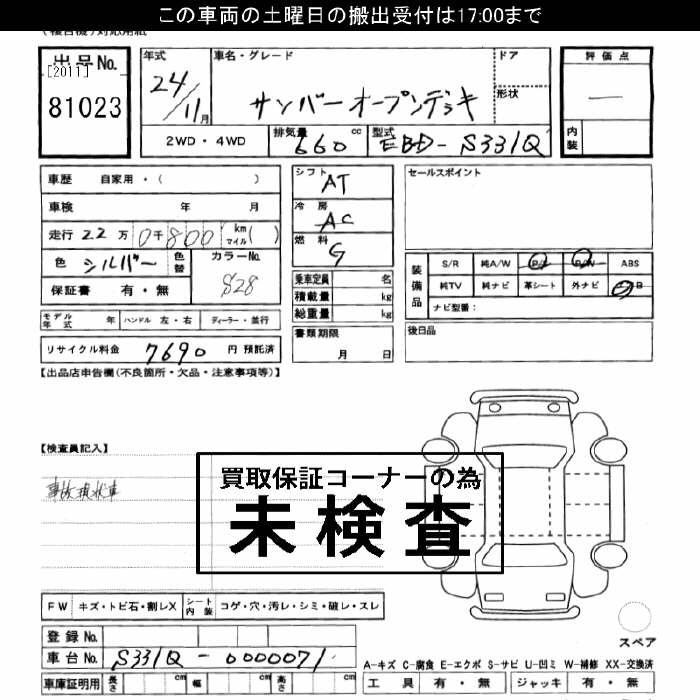 この車両の土曜日の搬出受付は17:00まで
出品No.
[2011]
81023
年式
24/11月
車名・グレード
サンバーオープンデッキ
ドア
形状
評価点
—
内装
2WD・4WD
排気量 660 cc
型式 EBD-S331Q
車歴 自家用・( )
車検 年 月
走行 22万0千800 km マイル( )
色 シルバー 色替
カラーNo. S28
保証書 有・無
シフト AT
冷房 AC
燃料 G
乗車定員 名
積載量 kg
総重量 kg
書類期限
月 日
セールスポイント
装備品
S/R 純A/W P/S P/W ABS
純TV 純ナビ 革シート 外ナビ エアB
ナビ型番:
後日品
モデル年式 年 ハンドル 左・右 ディーラー・並行
リサイクル料金 7690 円 預託済
【出品店申告欄(不良箇所・欠品・注意事項等)】
【検査員記入】
事故現状車
買取保証コーナーの為
未検査
FW キズ・トビ石・割レX シート内装 コゲ・穴・汚レ・シミ・破レ・スレ
登録No.
車台No. S331Q-0000071
車庫証明用 長さ cm 幅 cm 高さ cm
スペア
A-キズ C-腐食 E-エクボ S-サビ U-凹ミ W-補修 XX-交換済
工具 有・無 ジャッキ 有・無